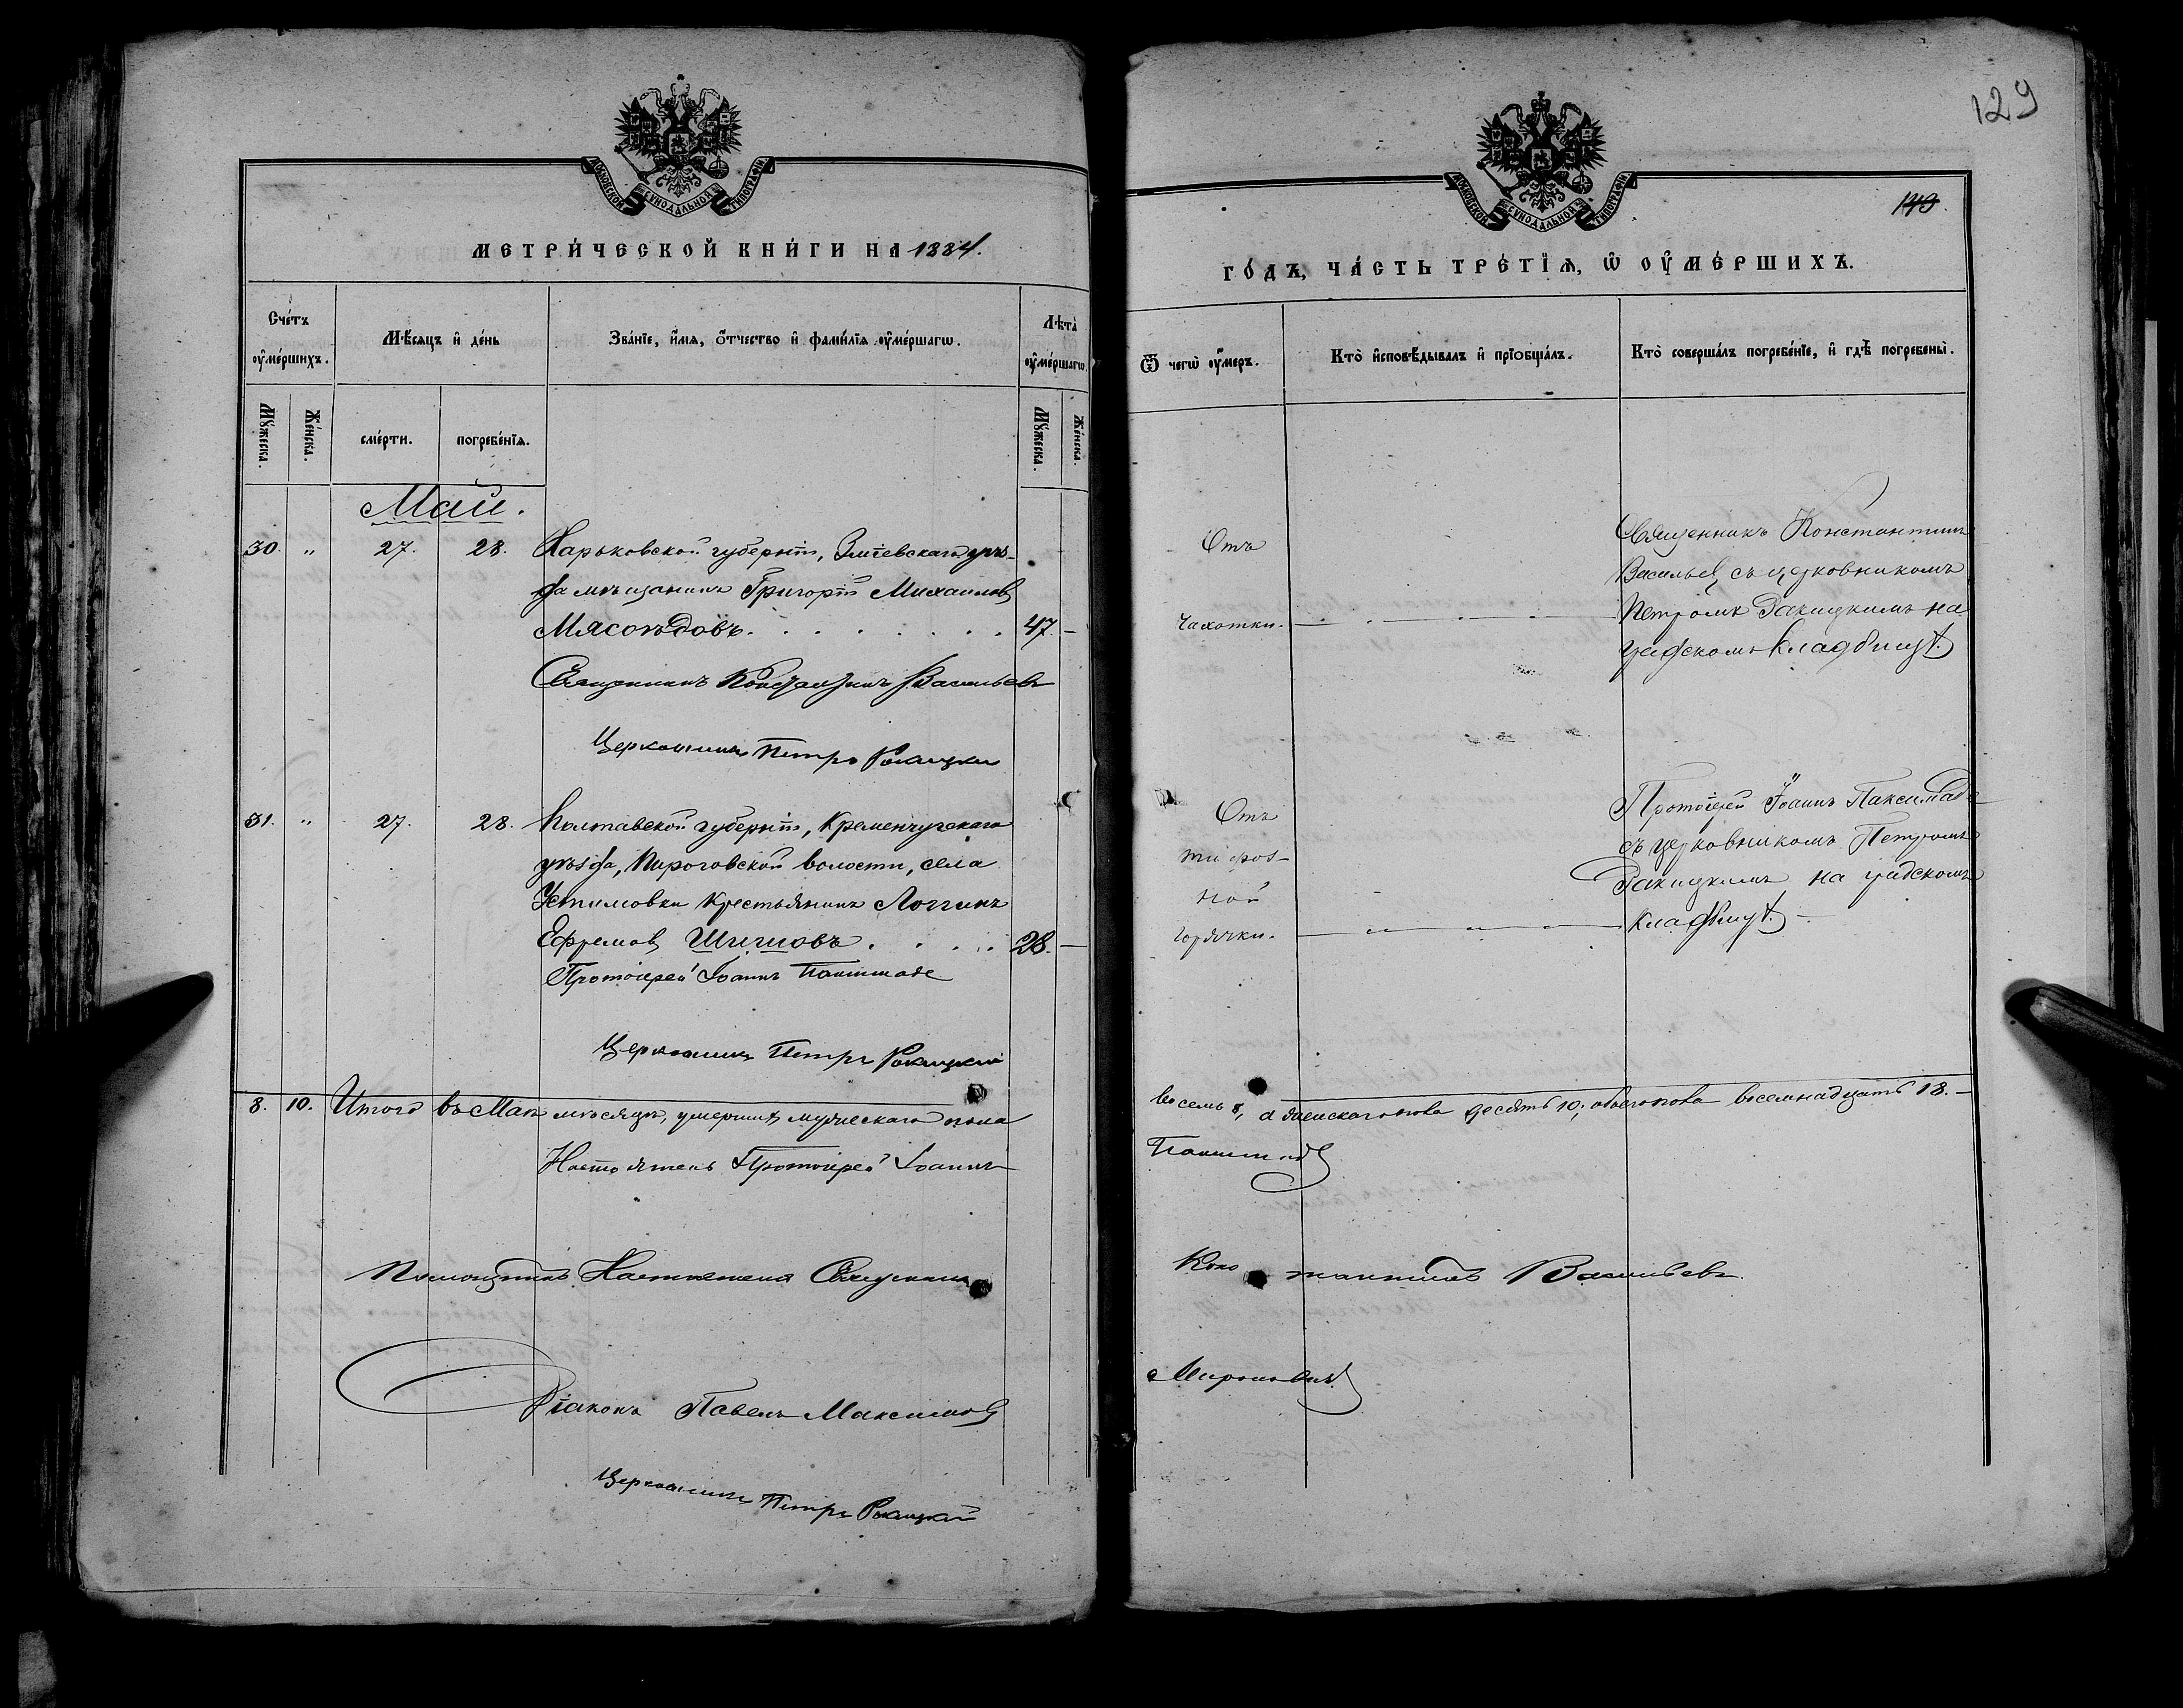 129
МОСКОВСКОЙ СѴНОДАЛЬНОЙ ТИПОГРАФІИ
МЕТРИ́ЧЕСКОЙ КНИ́ГИ НА 1884.
Сче́тъ ᲂу҆ме́ршихъ.
Мѣ́сяцъ и҆ де́нь
Зва́нїе, и҆́мѧ, ѻ҆́тчество и҆ фами́лїѧ ᲂу҆ме́ршагѡ.
Лѣ́та ᲂу҆ме́ршагѡ.
Мꙋ́жеска.
Же́нска.
сме́рти.
погребе́нїѧ.
Мꙋ́жеска.
Же́нска.
Май.
30. " 27. 28. Харьковской губерніи, Зміевскаго уѣз-
да мѣщанинъ Григорій Михаиловъ
Мясоѣдовъ. 47. –
Священникъ Константинъ Васильевъ
Церковникъ Петръ Рокицкій
31. " 27. 28. Полтавской губерніи, Кременчугскаго
уѣзда, Пироговской волости, села
Устимовки крестьянинъ Логгинъ
Ефремовъ 28. –
Протоіерей Іоаннъ
Церковникъ Петръ Рокицкій
8. 10. Итого въ Маѣ мѣсяцѣ, умершихъ мужескаго пола
Настоятель Протоіерей Іоаннъ
Помощникъ Настоятеля Священникъ
Діаконъ Павелъ Максимовъ
Церковникъ Петръ Рокицкій
МОСКОВСКОЙ СѴНОДАЛЬНОЙ ТИПОГРАФІИ
ГО́ДЪ, ЧА́СТЬ ТРЕ́ТЇѦ, Ѡ҆ ОУ҆МЕ́РШИХЪ.
Ѿ чегѡ̀ ᲂу҆́меръ.
Кто̀ и҆сповѣ́дывалъ и҆ прїѡбща́лъ.
Кто̀ соверша́лъ погребе́нїе, и҆ гдѣ̀ погребены̀.
Отъ
чахотки.
Священникъ Константинъ
Васильевъ съ церковникомъ
Петромъ Ракицкимъ на
градскомъ кладбищѣ.
Отъ
тифоз-
ной
горячки.
Протоіерей Іоаннъ
съ церковникомъ Петромъ
Ракицкимъ на градскомъ
кладбищѣ. –
восемь 8, а женскаго пола десять 10, обоего пола восемнадцать 18. –
Константинъ Васильевъ.
Мироновичъ